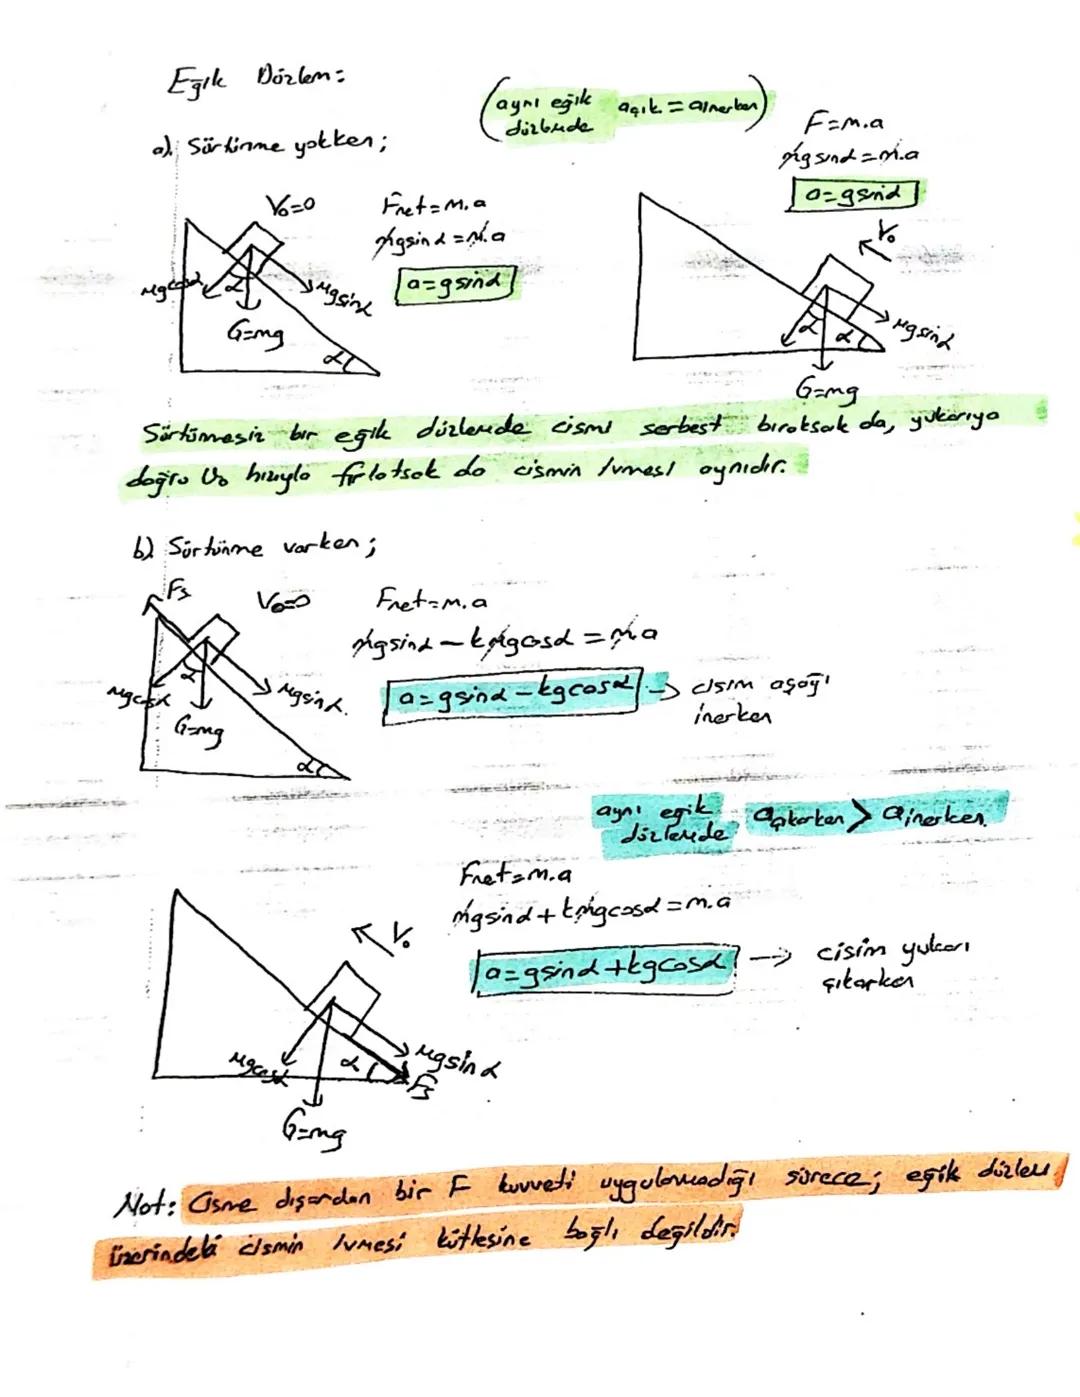 Eğik Düzlem:
a) Sürtünme yokken;
(aynı eğik düzlemde açık. = ainerken)
V₀=0
Fnet=m.a
mgsinα=m.a
a=gsinα
mgcosα
α
mgsinα
G=mg
α
F=m.a
mgsinα=m.a
a=gsinα
V₀
α
α
mgsinα
G=mg
Sürtünmesiz bir eğik düzlemde cismi serbest bıraksak da, yukarıya
doğru V₀ hızıyla fırlatsak da cismin ivmesi aynıdır.
b) Sürtünme varken;
Fs
V₀=0
Fnet=m.a
mgsinα - kmgcosα = ma
a=gsinα-kgcosα → cisim aşağı
inerken
mgcosα
α
mgsinα
G=mg
α
aynı eğik
düzlemde
açıkarken > ainerken
Fnet=m.a
mgsinα+kmgcosα=m.a
a=gsinα+kgcosα → cisim yukarı
çıkarken
V₀
mgcosα
α
mgsinα
Fs
G=mg
Not: Cisme dışardan bir F kuvveti uygulanmadığı sürece; eğik düzlem
üzerindeki cismin ivmesi kütlesine bağlı değildir.